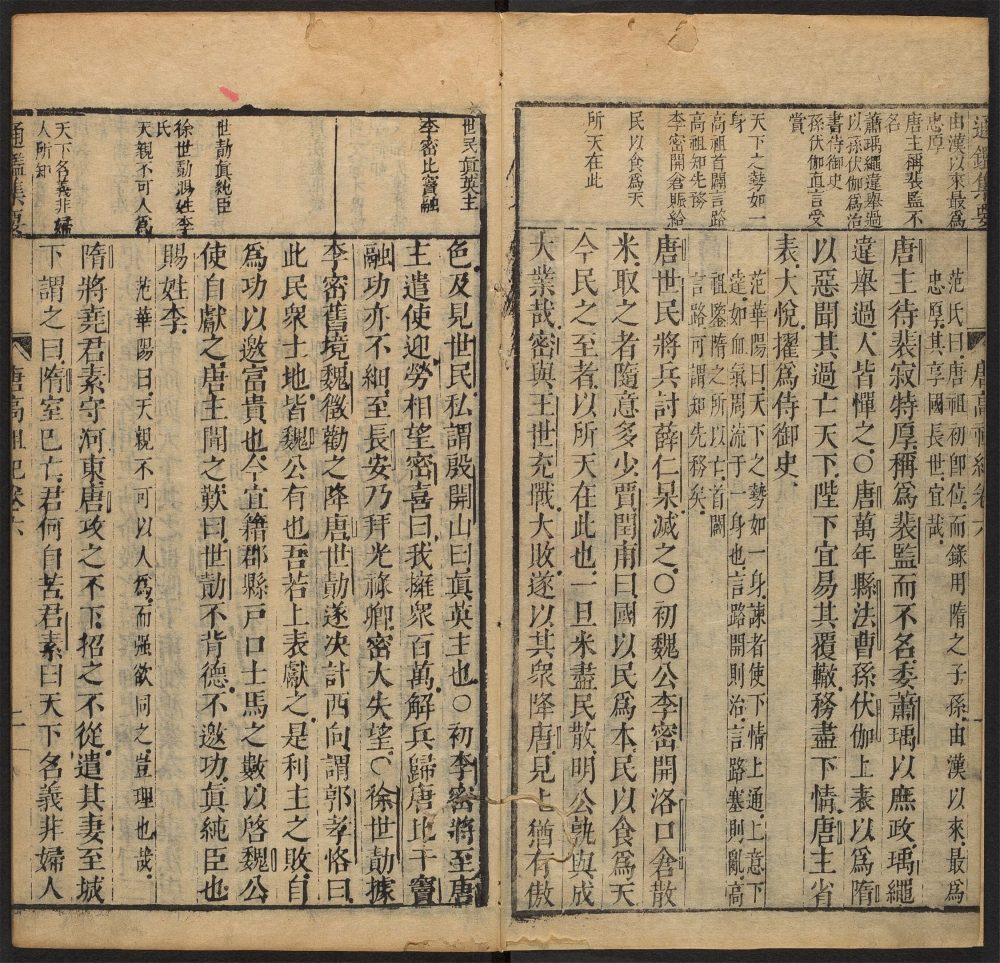 通鑑集要
由漢以來最爲
忠厚
唐主稱裴監不
名
蕭瑀繩違舉過
以孫伏伽爲治
書侍御史
孫伏伽直言受
賞
天下之勢如一
身
高祖首開言路
高祖知先務
李密開倉賑給
民以食爲天
所天在此
唐高祖紀卷六
范氏曰唐祖初卽位而錄用隋之子孫由漢以來最爲
忠厚其享國長世宜哉
唐主待裴寂特厚稱爲裴監而不名委蕭瑀以庶政瑀繩
違舉過人皆憚之○唐萬年縣法曹孫伏伽上表以爲隋
以惡聞其過亡天下陛下宜易其覆轍務盡下情唐主省
表大悅擢爲侍御史
范華陽曰天下之勢如一身諫者使下情上通上意下
達如血氣周流于一身也言路開則治言路塞則亂高
祖鑒隋之所以亡首闢
言路可謂知先務矣
唐世民將兵討薛仁杲滅之○初魏公李密開洛口倉散
米取之者隨意多少賈閏甫曰國以民爲本民以食爲天
今民之至者以所天在此也一旦米盡民散明公孰與成
大業哉密與王世充戰大敗遂以其衆降唐見上猶有傲
世民眞英主
李密比竇融
世勣眞純臣
徐世勣賜姓李
氏
天親不可人爲
天下名義非婦
人所知
通鑑集要
色及見世民私謂殷開山曰眞英主也○初李密將至唐
主遣使迎勞相望密喜曰我擁衆百萬解兵歸唐比于竇
融功亦不細至長安乃拜光祿卿密大失望○徐世勣據
李密舊境魏徵勸之降唐世勣遂決計西向謂郭孝恪曰
此民衆士地皆魏公有也吾若上表獻之是利主之敗自
爲功以邀富貴也今宜籍郡縣戶口士馬之數以啓魏公
使自獻之唐主聞之歎曰世勣不背德不邀功眞純臣也
賜姓李
范華陽曰天親不可以人爲而强欲同之豈理也哉
隋將堯君素守河東唐攻之不下招之不從遣其妻至城
下謂之曰隋室已亡君何自苦君素曰天下名義非婦人
唐高祖紀卷六
二